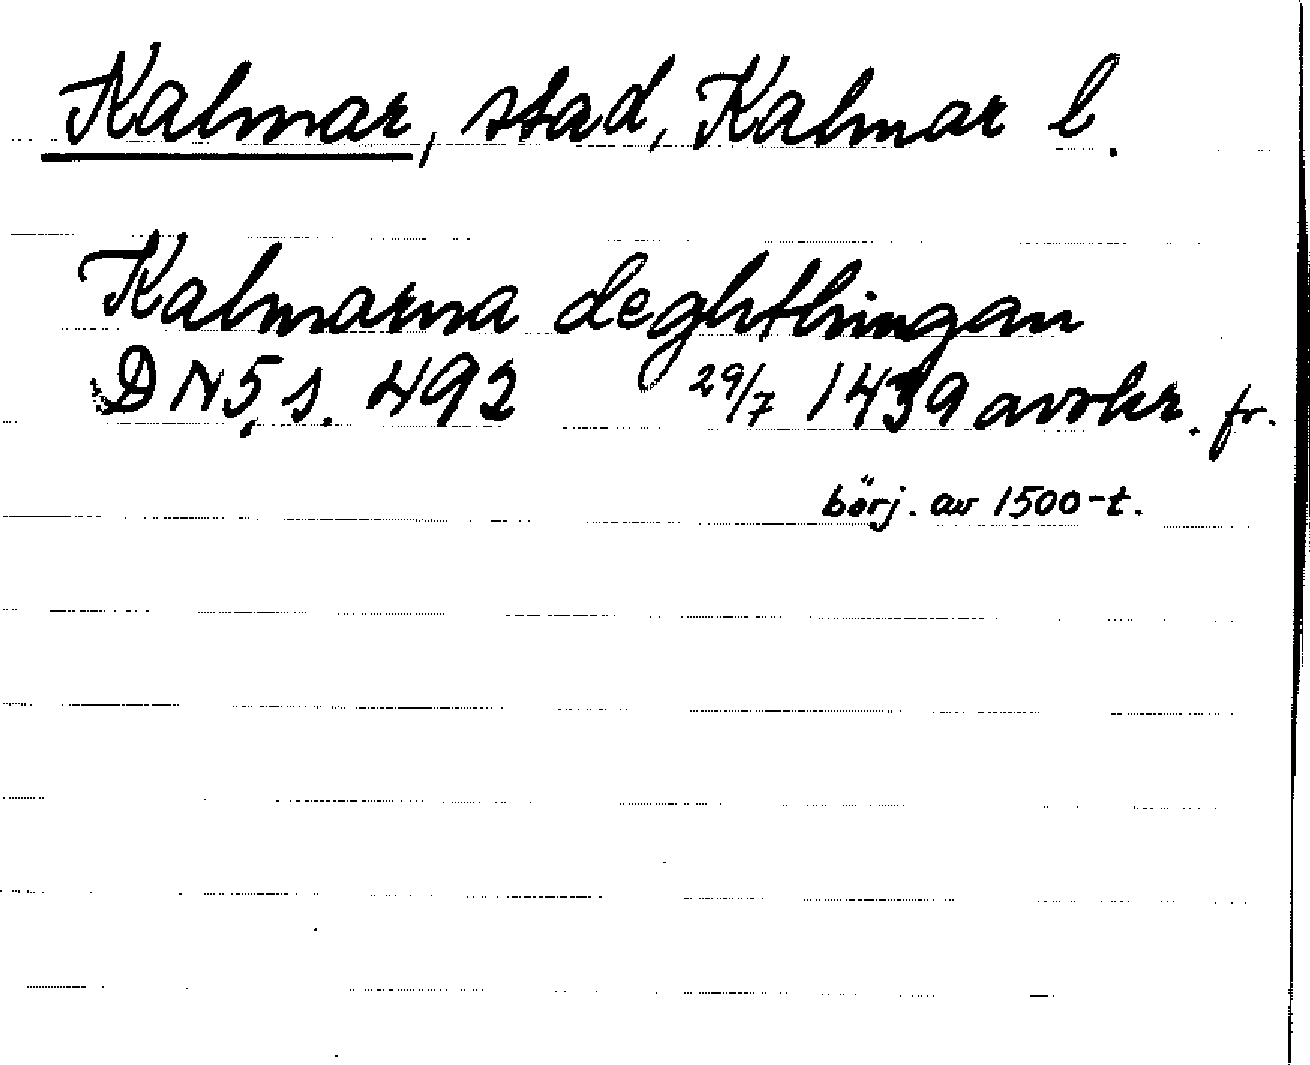 Kalmar, stad, Kalmar l.
Kalmarna deghthingan
DN 5, s. 492 29/7 1439 avskr. fr.
börj. av 1500-t.